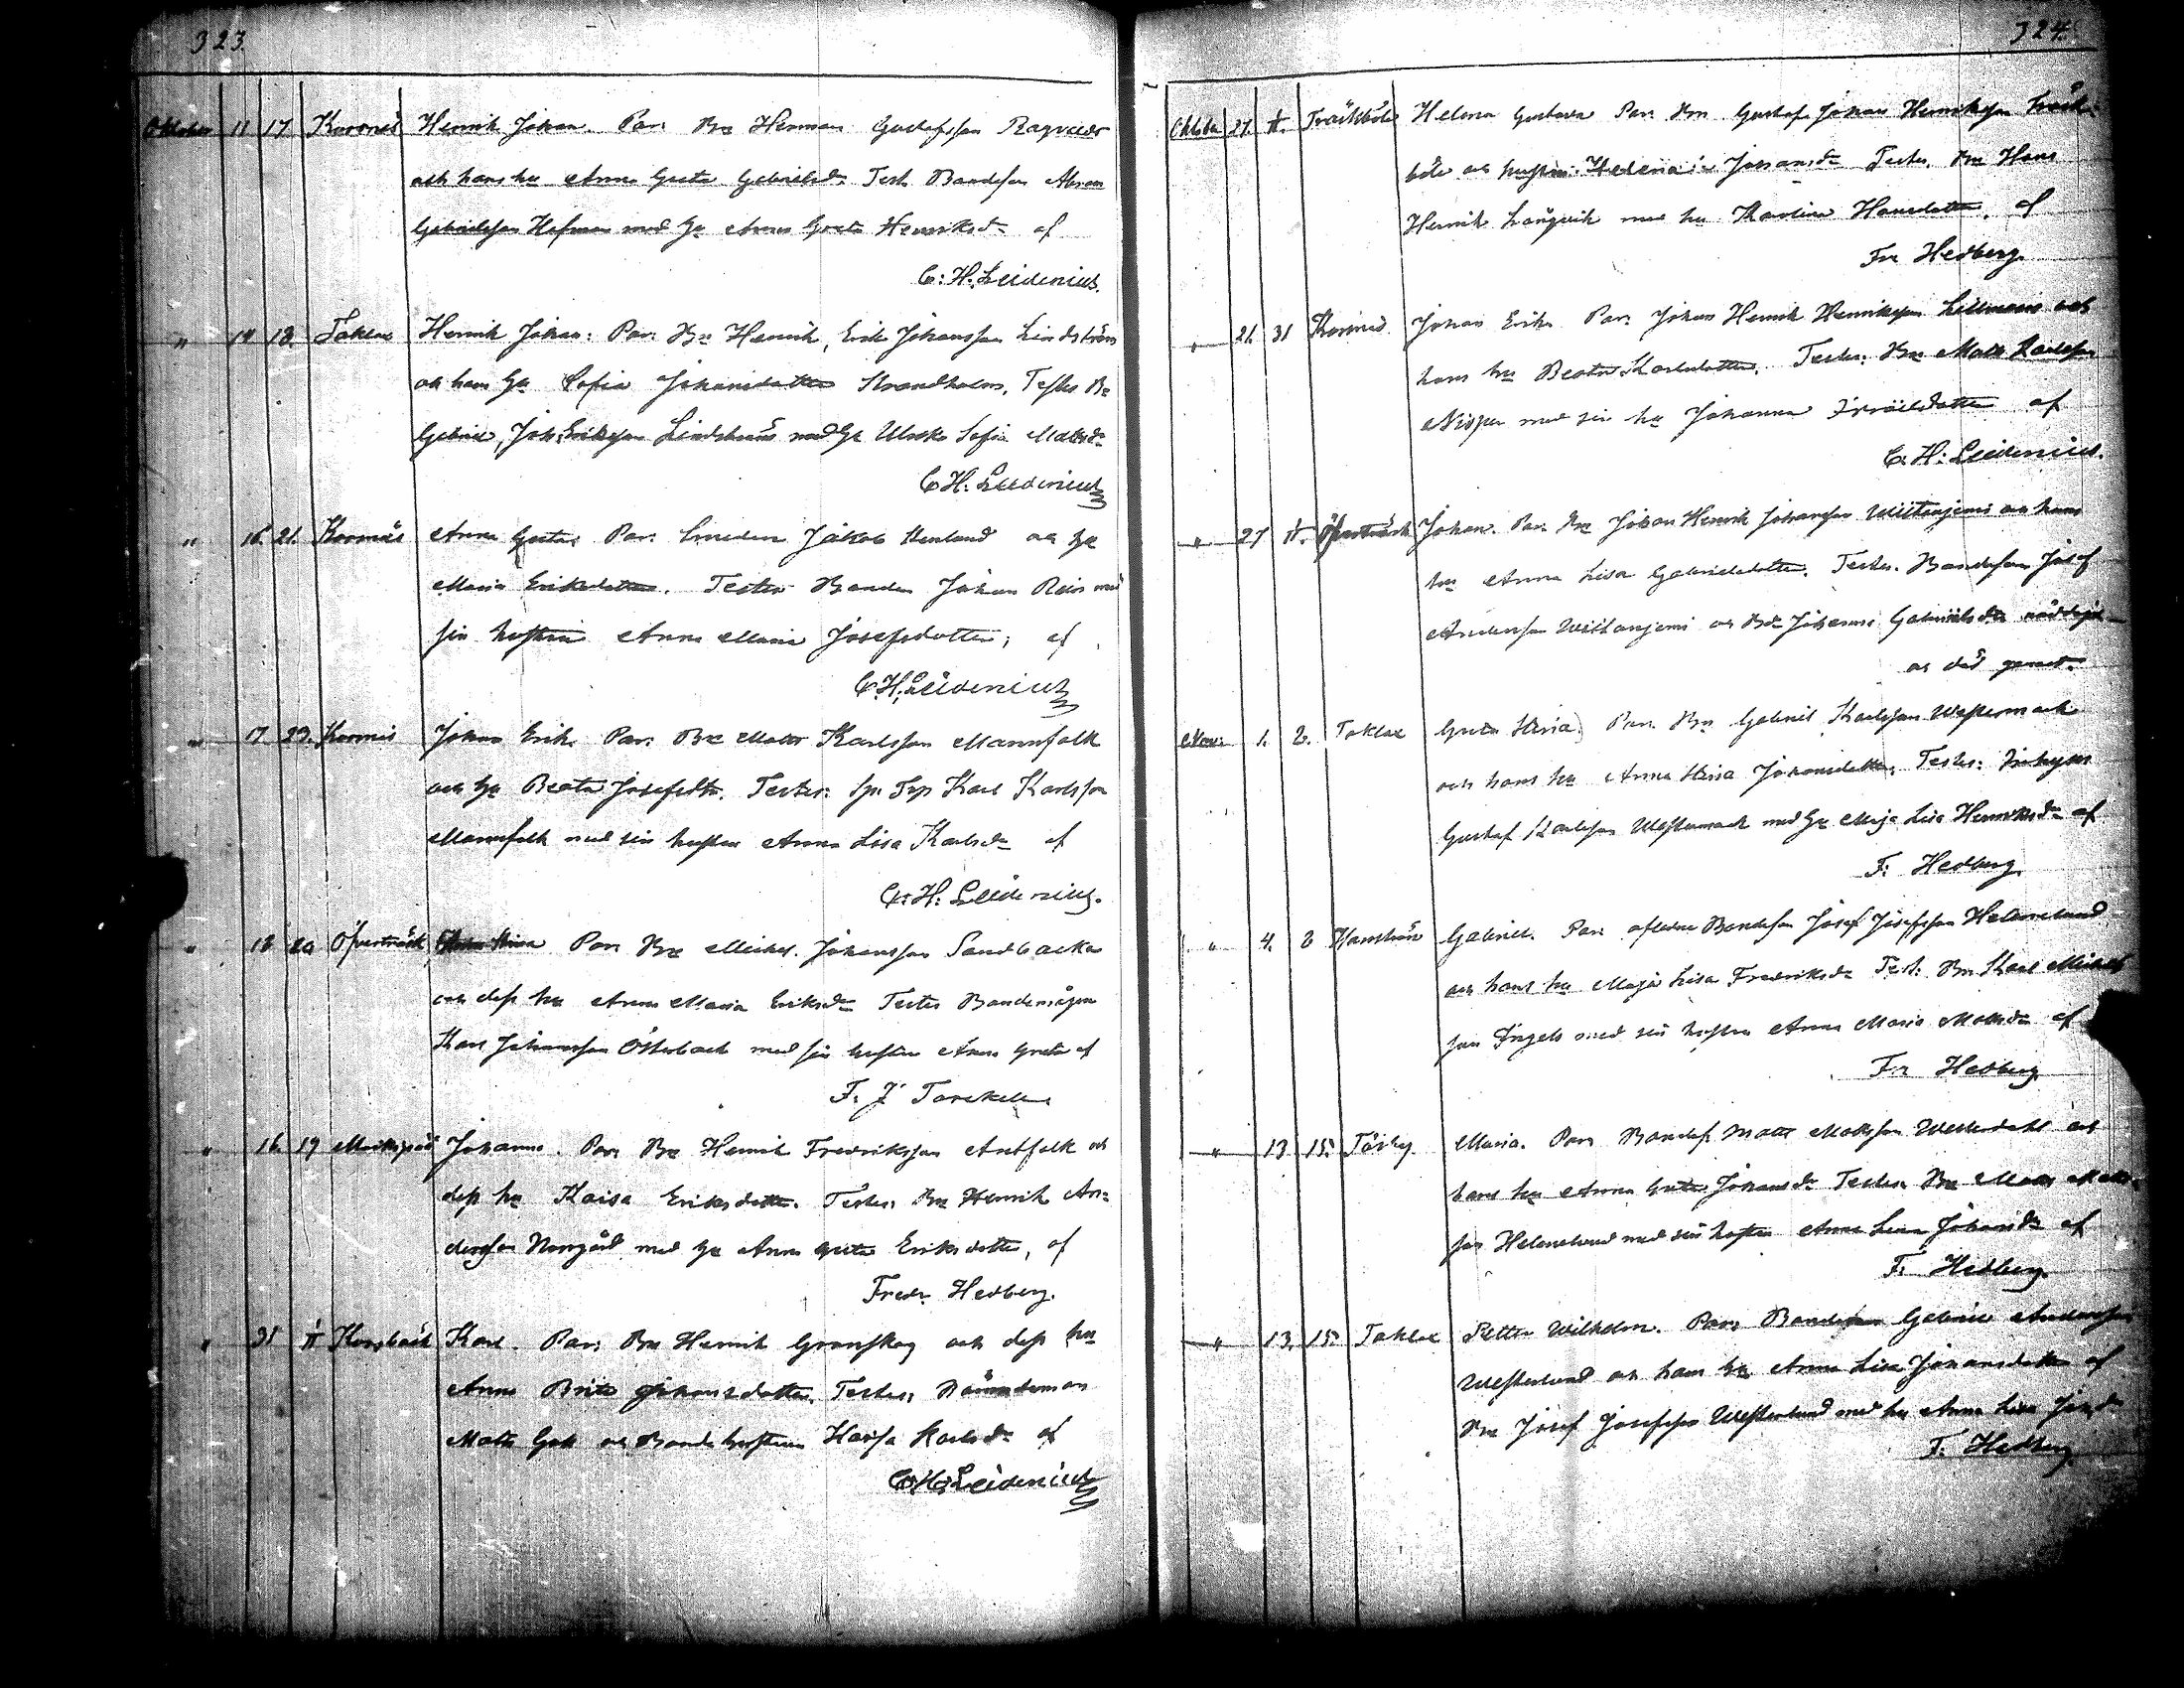 323.
Oktober 11 17 Korsnäs Henrik Johan. Par: Bn Herman Gustafsson Ragvals
och hans hu Anna Greta Gabrielsdr. Test. Bondeson Abram
Gabrielsson Hofman med hu Anna Greta Henriksdr af
C: H: Leidenius.
" 14 18. Taklax Henrik Johan: Par: Bn Henrik, Erik Johansson Lindström
och hans hu Sofia Johansdotter Strandholm, Testes Bn
Gabriel, Joh: Eriksson Lindström med hu Ulrika Sofia Mattsdr
C H: Leidenius
" 16. 21. Korsnäs Anna Greta, Par: Smeden Jakob Stenlund och hu
Maria Eriksdotter. Testes Bonden Johan Reis med
sin hustru Anna Maria Josefsdotter, af
C. H: Leidenius
" 17 23. Korsnäs Johan Erik. Par: Bn Matts Karlsson Mannfolk
och hu Beata Josefsdtr. Testes: Karl Karlsson
Mannfolk med sin hustru Anna Lisa Karlsdr af
C: H: Leidenius.
" 18 20 Öfverträsk Stina Par: Bn Michel Johansson Sandbacka
och dess hu Anna Maria Eriksdr Testes Bondemågen
Karl Johansson Österback med sin hustru Anna Greta af
F. J. Tarckelin
" 16. 19 Johanna. Par: Bn Henrik Fredriksson Antfolk och
dess hu Kaisa Eriksdotter. Testes: Bn Henrik An=
dersson Norrgård med hu Anna Greta Eriksdotter, af
Fredr. Hedberg.
" 31 Korsbäck Karl. Par: Bn Henrik Granskog och dess hu
Anna Brita Johansdotter. Testes: Nämndeman
Matts och Bonde hustrun Kaisa Karlsdr af
C: H: Leidenius
324.
Oktober 27. Träskböle Helena Gustava Par: Bn Gustaf Johan Henriksson Träsk=
böle och hustru Helena Johansdr Testes. Bn Hans
Henrik Långvik med hu Karolina Hansdotter. af
Fr. Hedberg.
" 21. 31 Korsnäs Johan Erik. Par: Johan Henrik Henriksson Lillmans och
hans hu Beata Karlsdotter. Testes: Bn Matts Karlsson
Nisper med sin hu Johanna Israelsdotter af
C. H: Leidenius.
" 27 Öfverträsk Johan. Par: Bn Johan Henrik Johansson Wiitanjemi och hans
hu Anna Lisa Gabrielsdotter. Testes. Bondeson Josef
Andersson Wiitanjemi och Johanna Gabrielsdr nöddöpt
och död
Nov: 1. 2. Taklax Greta Stina. Par: Bn Gabriel Karlsson Westermack
och hans hu Anna Stina Johansdotter. Testes:
Gustaf Karlsson Westermack med hu Maja Lisa Henriksdr af
F: Hedberg.
" 4. 8 Gabriel. Par: aflidne Bondeson Josef Josefsson Helenelund
och hans hu Maja Lisa Fredriksdr Test: Bn Karl Michels
son Ingels med sin hustru Anna Maria Mattsdr af
Fr: Hedberg
" 13 15. Töjby Maria. Par: Bondes: Matts Mattsson Westerdahl och
hans hu Anna Greta Johansdr Testes. Bn Matts Matts=
son Helenelund med sin hustru Anna Lena Johansdr af
F: Hedberg.
" 13. 15. Taklax Petter Wilhelm. Par: Bondeson Gabriel Andersson
Westerlund och hans hu Anna Lisa Johansdotter af
Bn Josef Josefsson Westerlund med hu Anna Lisa Johsdr
F: Hedberg